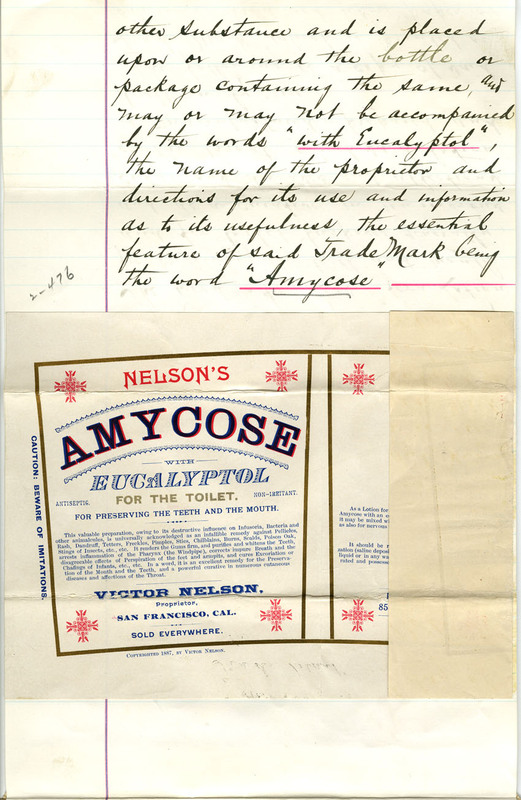 other substance and is placed
upon or around the bottle or
package containing the same, and
may or may not be accompanied
by the words "with Eucalyptol",
the name of the proprietor and
directions for its use and information
as to its usefulness, the essential
feature of said Trade Mark being
the word "Amycose"
2-476
NELSON'S
AMYCOSE
WITH
EUCALYPTOL
ANTISEPTIC.
FOR THE TOILET.
NON-IRRITANT.
FOR PRESERVING THE TEETH AND THE MOUTH.
This valuable preparation, owing to its destructive influence on Infusoria, Bacteria and
other animalcules, is universally acknowledged as an infallible remedy against Pellicles,
Rash, Dandruff, Tetters, Freckles, Pimples, Sties, Chilblains, Burns, Scalds, Poison Oak,
Stings of Insects, etc., etc. It renders the Gums firm, and purifies and whitens the Teeth,
arrests inflammation of the Pharynx (the Windpipe), corrects impure Breath and the
disagreeable effects of Perspiration of the feet and armpits, and cures Excoriation or
Chafings of Infants, etc., etc. In a word, it is an excellent remedy for the Preserva-
tion of the Mouth and the Teeth, and a powerful curative in numerous cutaneous
diseases and affections of the Throat.
VICTOR NELSON,
Proprietor,
SAN FRANCISCO, CAL.
SOLD EVERYWHERE.
COPYRIGHTED 1887, BY VICTOR NELSON.
CAUTION: BEWARE OF IMITATIONS.
As a Lotion for
Amycose with an
it may be mixed w
as also for nervous
It should be r
zation (saline depos
liquid or in any wa
rated and possess
85